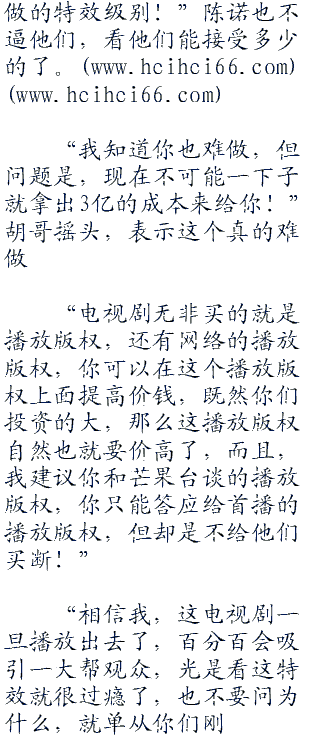 做的特效级别！”陈诺也不
逼他们，看他们能接受多少
的了。(www.hcihci66.com)
(www.hcihci66.com)
“我知道你也难做，但
问题是，现在不可能一下子
就拿出3亿的成本来给你！”
胡哥摇头，表示这个真的难
做
“电视剧无非买的就是
播放版权，还有网络的播放
版权，你可以在这个播放版
权上面提高价钱，既然你们
投资的大，那么这播放版权
自然也就要价高了，而且，
我建议你和芒果台谈的播放
版权，你只能答应给首播的
播放版权，但却是不给他们
买断！”
“相信我，这电视剧一
旦播放出去了，百分百会吸
引一大帮观众，光是看这特
效就很过瘾了，也不要问为
什么，就单从你们刚